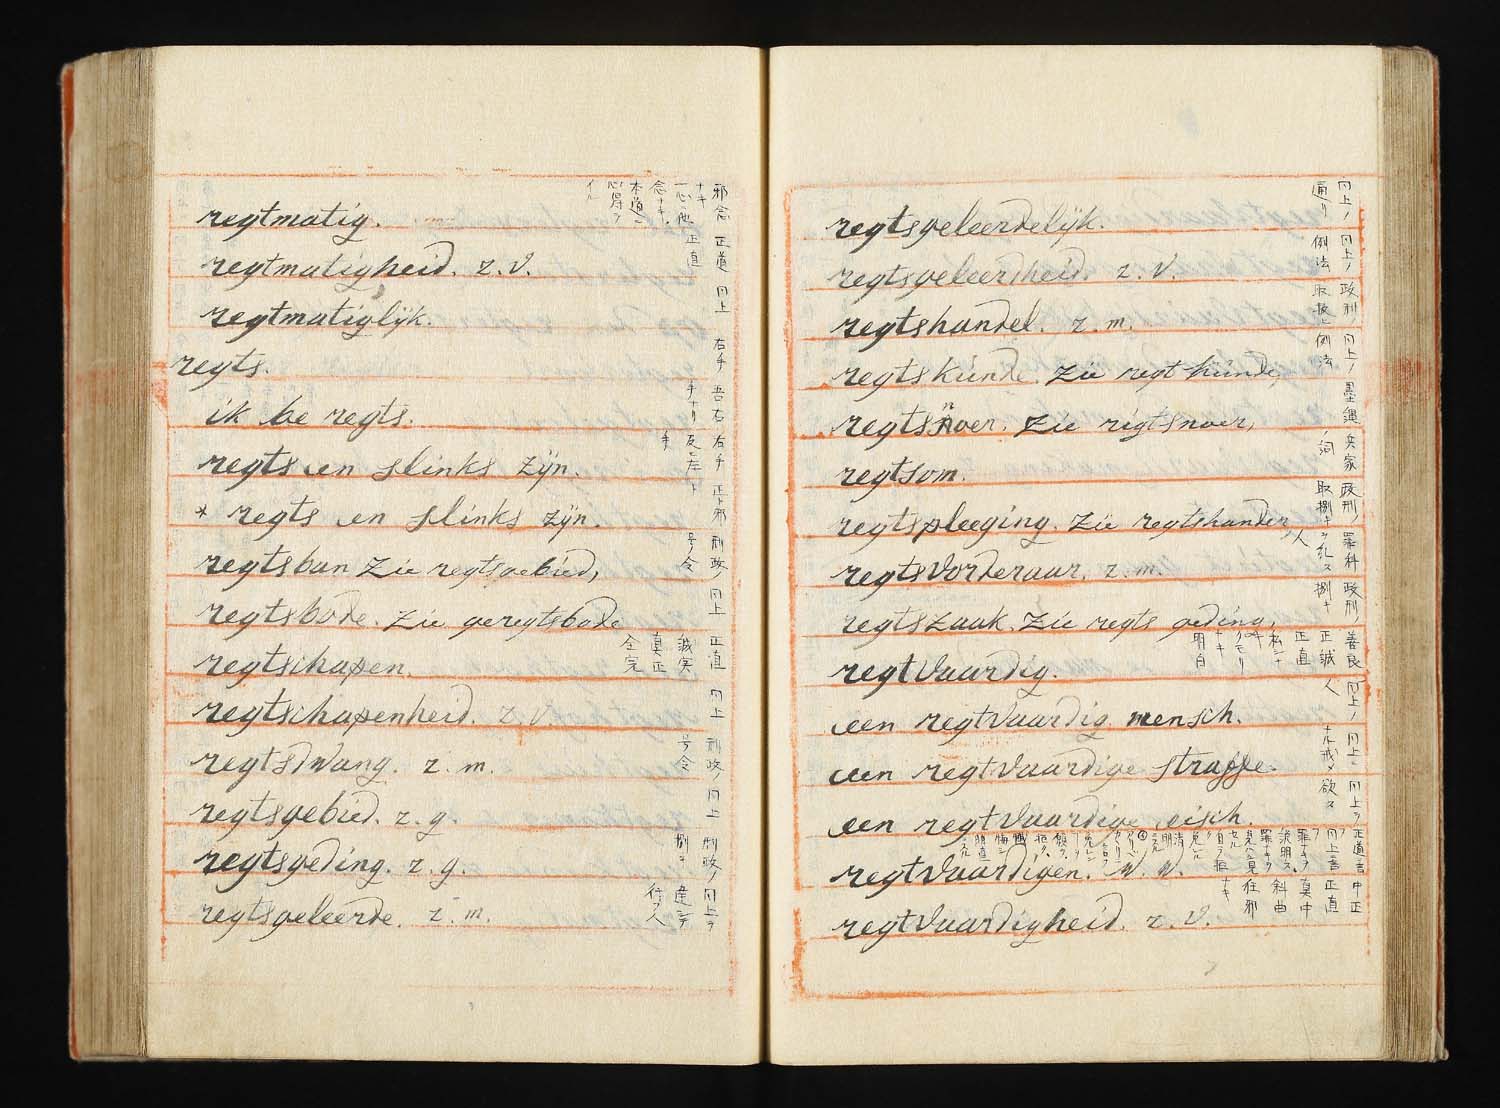 regtmatig.
regtmatigheid. z. v.
regtmatiglÿk.
regts.
ik be regts.
regts en slinks zÿn.
* regts en slinks zÿn.
regtsban Zie regtsgebied,
regtsbode. Zie geregtsbode
regtschapen.
regtschapenheid. z. v.
regtsdwang. z. m.
regtsgebied. z. g.
regtsgeding. z. g.
regtsgeleerde. z. m.
邪念ナキ
一心他念ナキ.
正道 正直
同上
右手
吾右手ナリ
右手 反 左手
正ト邪
刑政ノ号令
同上
正直 誠実 真正 全完
同上
刑政ノ号令
同上
刑政ノ捌キ
regtsgeleerdelÿk.
regtsgeleerdheid. z. v.
regtshandel. z. m.
regtskunde. Zie regt kunde,
regtsnoer. Zie rigtsnoer,
regtsom.
regtspleeging. Zie regtshandel,
regtsvorderaar. z. m.
regtszaak. Zie regts geding,
regtvaardig.
een regtvaardig mensch.
een regtvaardige straffe.
een regtvaardige eisch.
regtvaardigen. W. W.
regtvaardigheid. z. v.
同上ノ通リ
同上ノ例法
政刑ノ取扱
同上ノ例法
墨縄
兵家ノ詞
政刑ノ取捌キ
罪科
政刑ノ捌キ
善良 正誠 正直 明白
同上ノ人